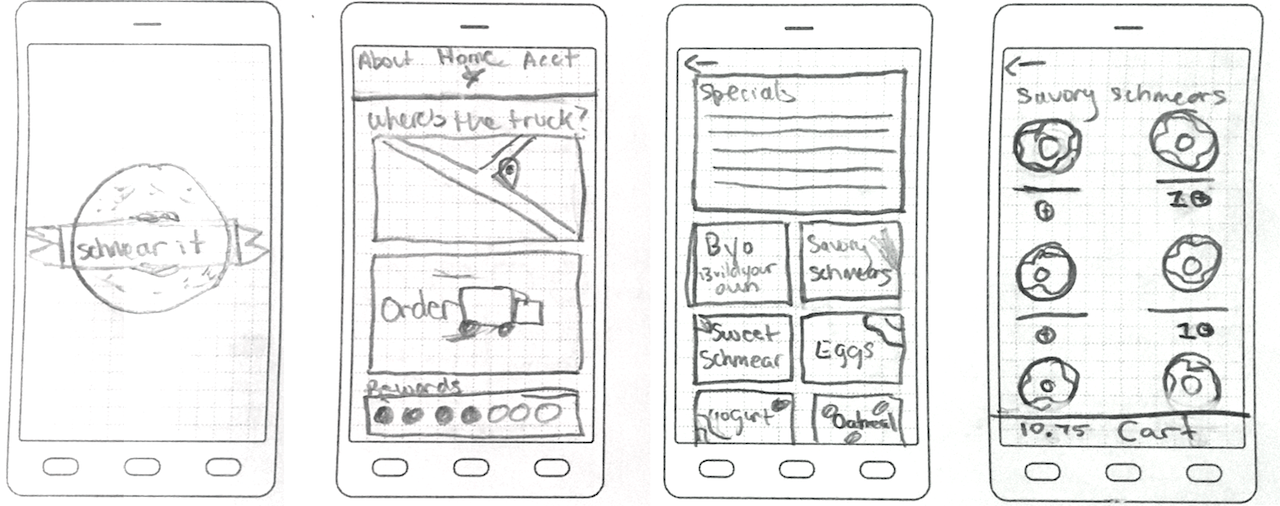 schmear it
About Home Acct
Where's the truck?
Order
Rewards
Specials
Byo
Build your
own
Savory
schmears
Sweet
Schmear
Eggs
Yogurt
Oatmeal
Savory schmears
10.75 Cart